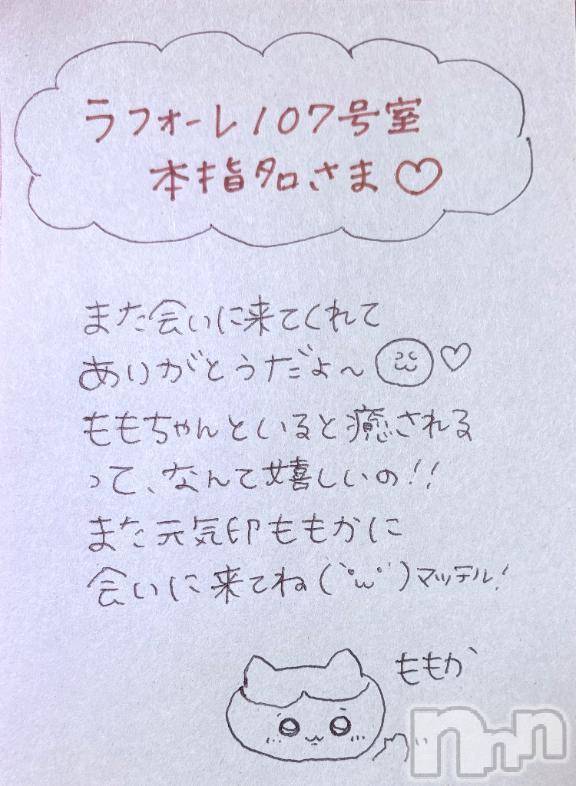 ラフォーレ107号室
本指名さま♡
また会いに来てくれて
ありがとうだよ〜♡
ももちゃんといると癒される
って、なんて嬉しいの!!
また元気印ももかに
会いに来てね(˚ω˚)マッテル!
ももか
nnn